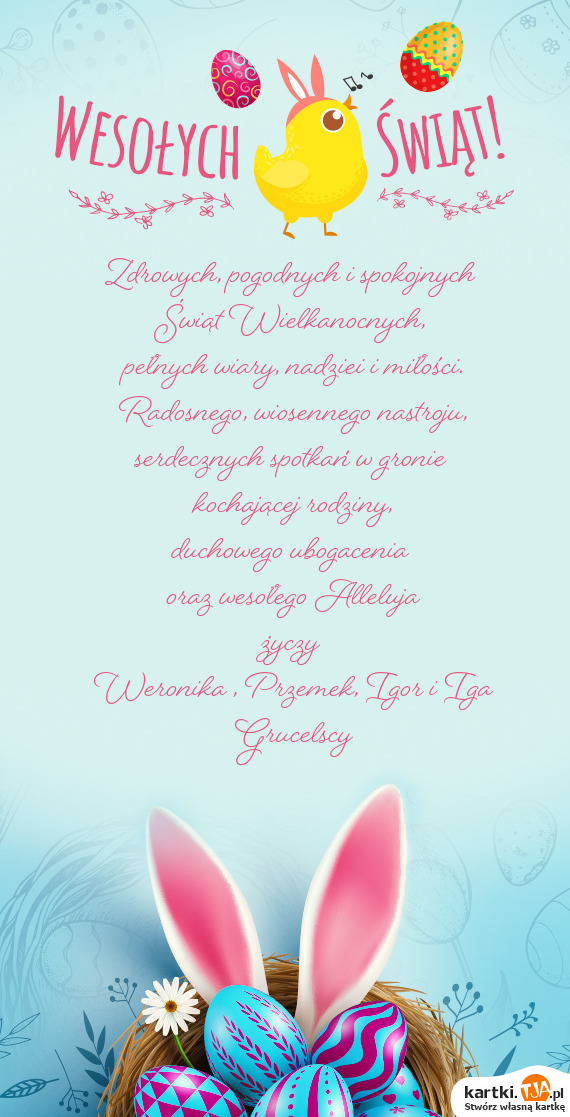 Wesołych Świąt!
Zdrowych, pogodnych i spokojnych
Świąt Wielkanocnych,
pełnych wiary, nadziei i miłości.
Radosnego, wiosennego nastroju,
serdecznych spotkań w gronie
kochającej rodziny,
duchowego ubogacenia
oraz wesołego Alleluja
życzy
Weronika , Przemek, Igor i Iga
Grucelscy
kartki.TJA.pl
Stwórz własną kartkę